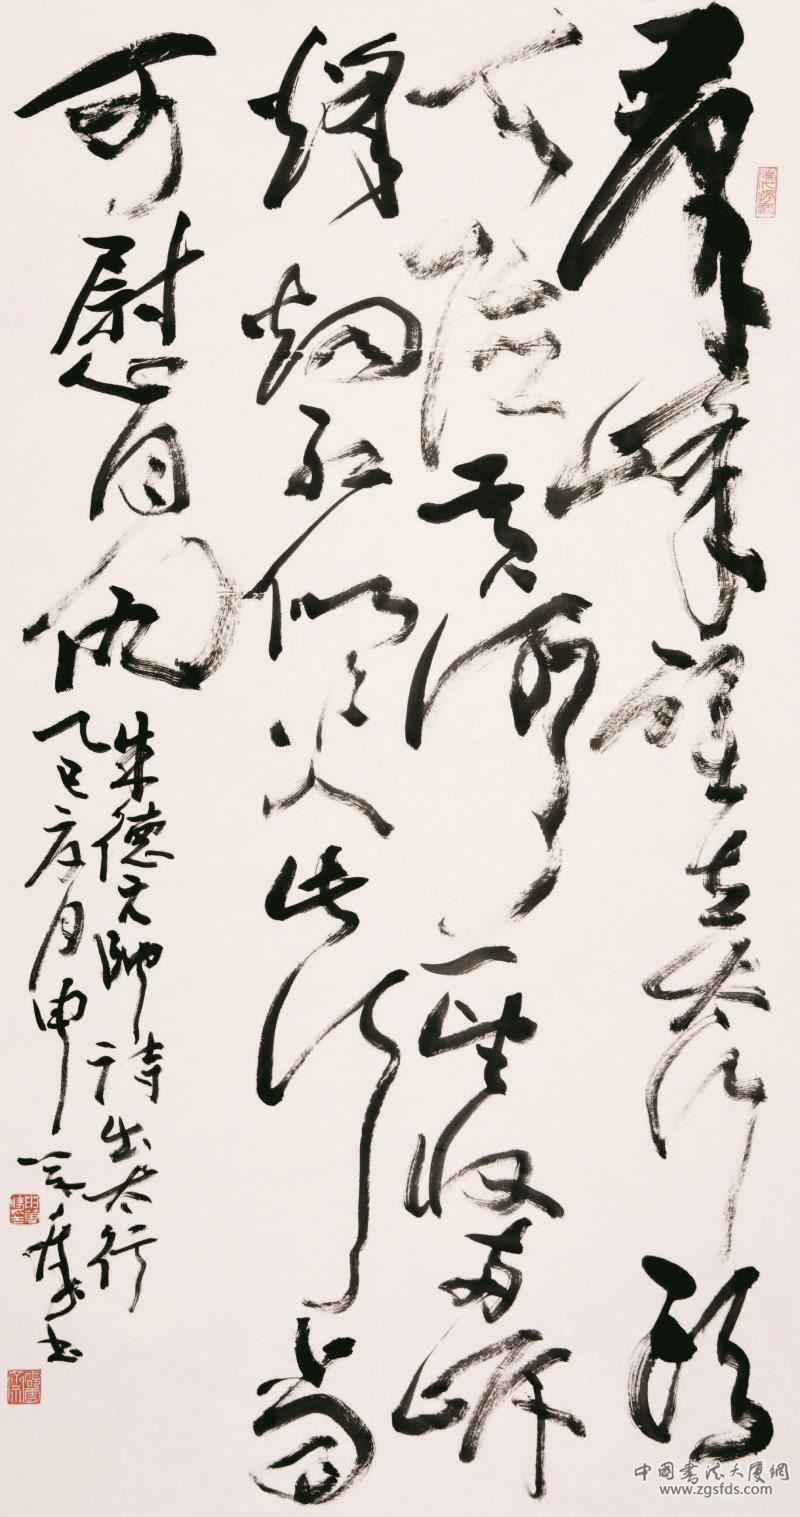 羣峰壁立太行頭
天险黄河一望收两岸
烽烟红似火此行当
可慰同仇
朱德元帥詩出太行
乙巳夏月申萬勝书
中國書法大厦網
www.zgsfds.com